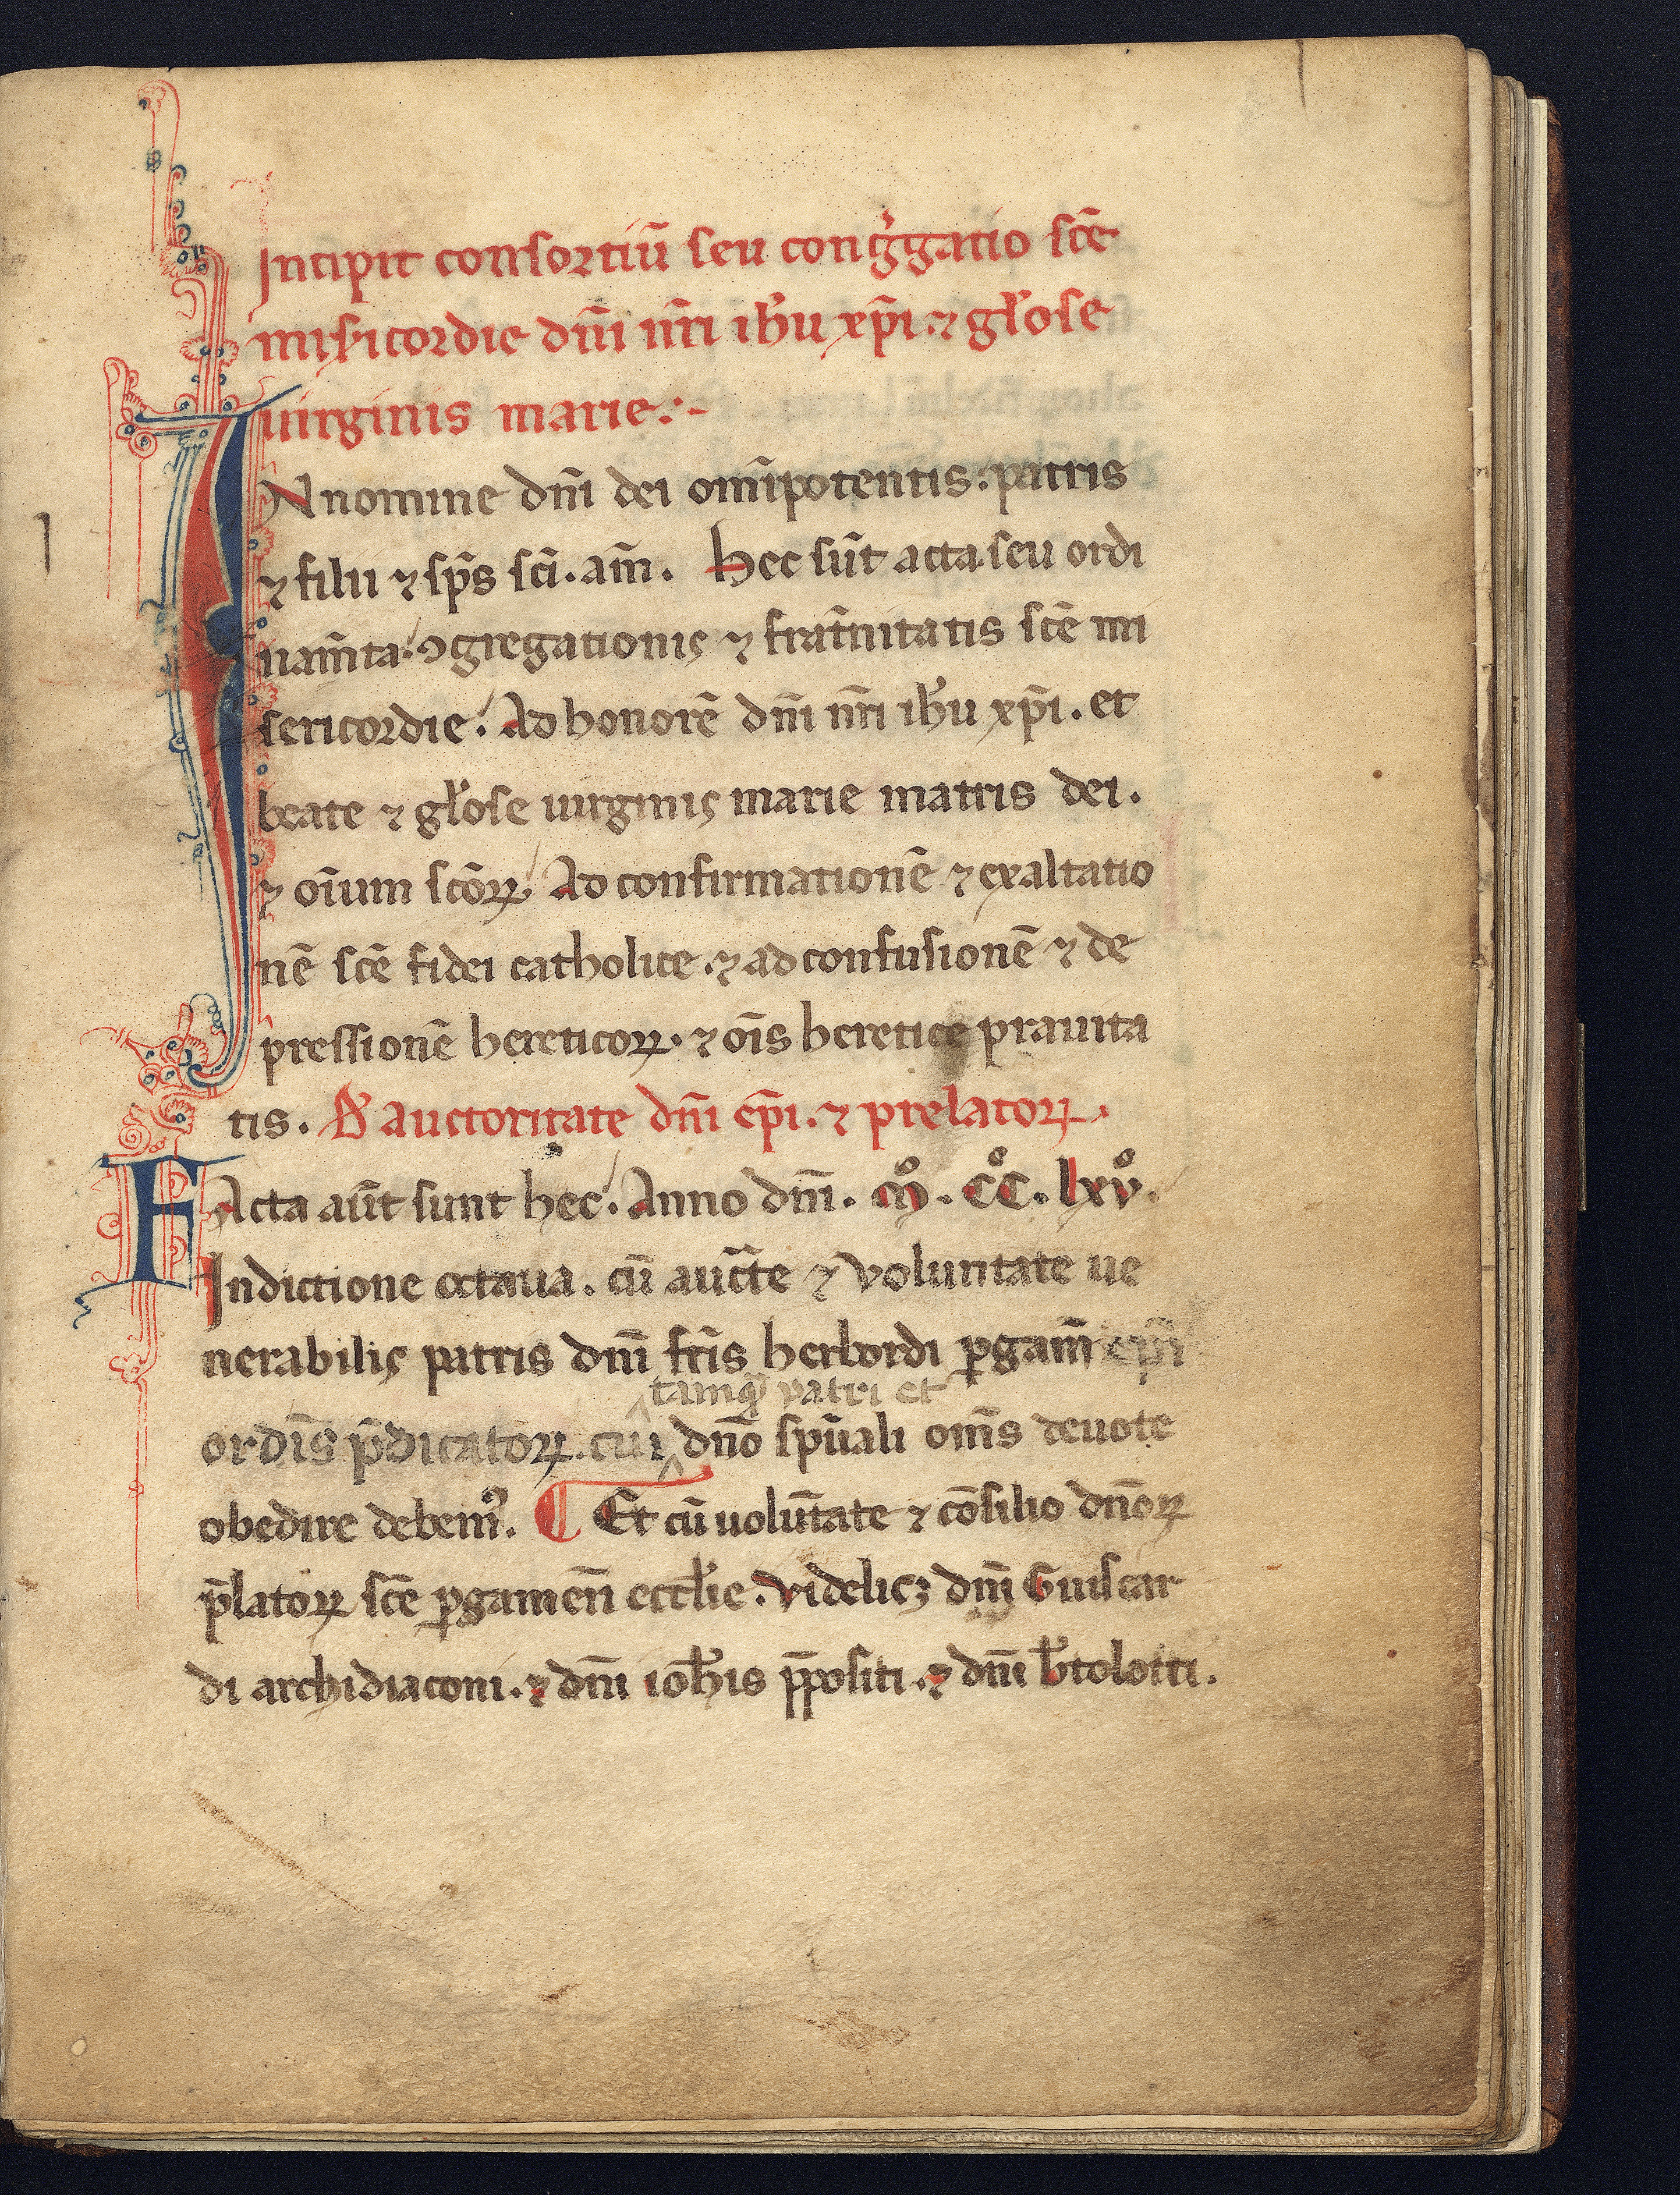 Incipit consortiū seu congͥgatio scē
misͥicordie dnī nrī ihu xp̄i. ⁊ glose
uirginis marie:-
IN nomine dnī dei om̄ipotentis: patris
⁊ filii ⁊ sp̄s scī. am̄. Hec sūt acta seu ordi
nam̄ta ꝯgregationis ⁊ frat̄nitatis scē mi
sericordie. Ad honorē dnī nrī ihu xp̄i. et
beate ⁊ glose uirginis marie matris dei.
⁊ oīum scōꝝ. Ad confirmationē ⁊ exaltatio
nē scē fidei catholice. ⁊ ad confusionē ⁊ de
pressionē hereticoꝝ. ⁊ oīs heretice prauita
tis. De auctoritate dnī ep̄i. ⁊ prelatoꝝ.
FActa aūt sunt hec. Anno dnī. mͦ. cͦc. lxvͦ.
Indictione octaua. cū auct̄e ⁊ voluntate ue
nerabilis patris dnī fr̄is herbordi ꝑgam̄ ep̄i
tamq̄ patri et
ordīs p̄dicatoꝝ. cui dn̄o spūali om̄s deuote
obedire debemꝰ. ¶ Et cū uolūtate ⁊ cōsilio dn̄oꝝ
p̄latoꝝ scē ꝑgamen̄ ecclie. videlicꝫ dnī Guiscar
di archidiaconi. ⁊ dnī ioh̄is p̄positi. ⁊ dnī b̄tolotti.